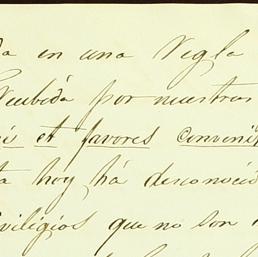 da en una Regla
Recibida por nuestras
et favores conveni
ta hoy há desconocid
iviligios que no son